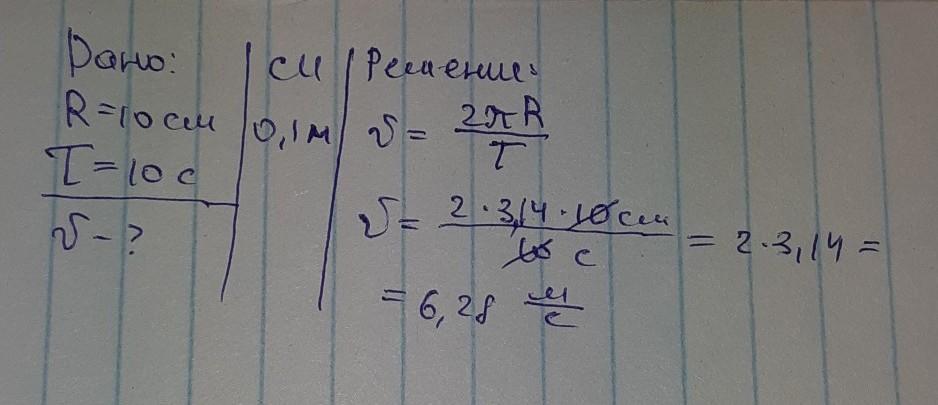 Дано:
R=10 см
T=10 с
υ-?
СИ
0,1м
Решение:
υ= 2πR/T
υ= 2·3,14·10см/10 с = 2·3,14=
= 6,28 м/с